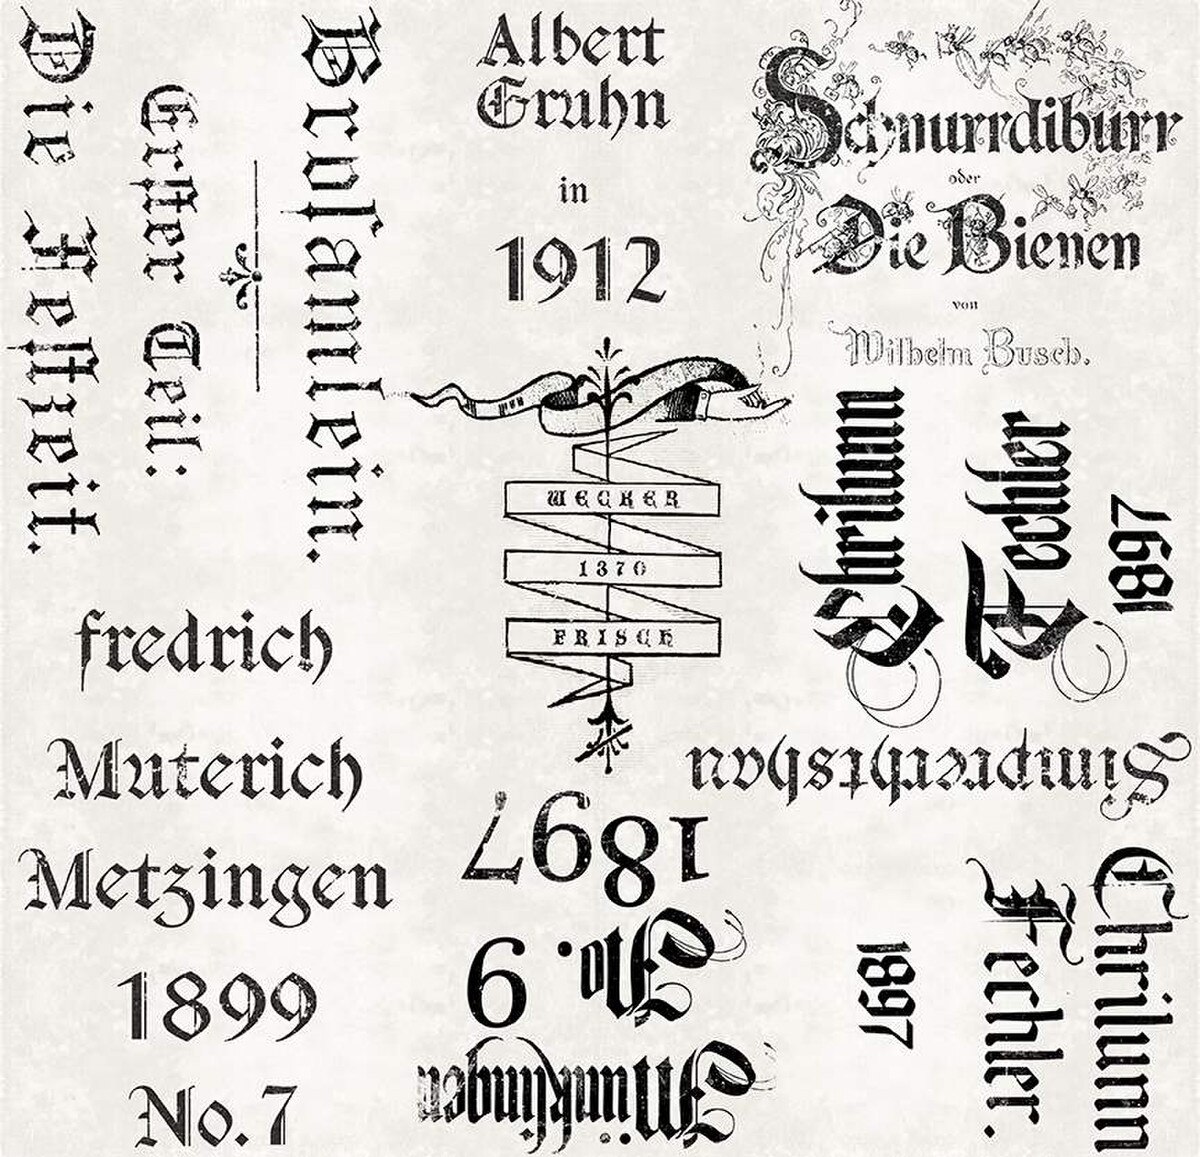 Die Feſtzeit.
Erſter Teil:
Broſamlein.
Albert
Gruhn
in
1912
Schnurrdiburr
oder
Die Bienen
von
Wilhelm Busch.
WECKER
1370
FRISCH
Chrilunn
Fechler
1897
fredrich
Muterich
Metzingen
1899
No. 7
Simprechtshau
1897
No. 6
Münklingen
Chrilunn
Fechler.
1897